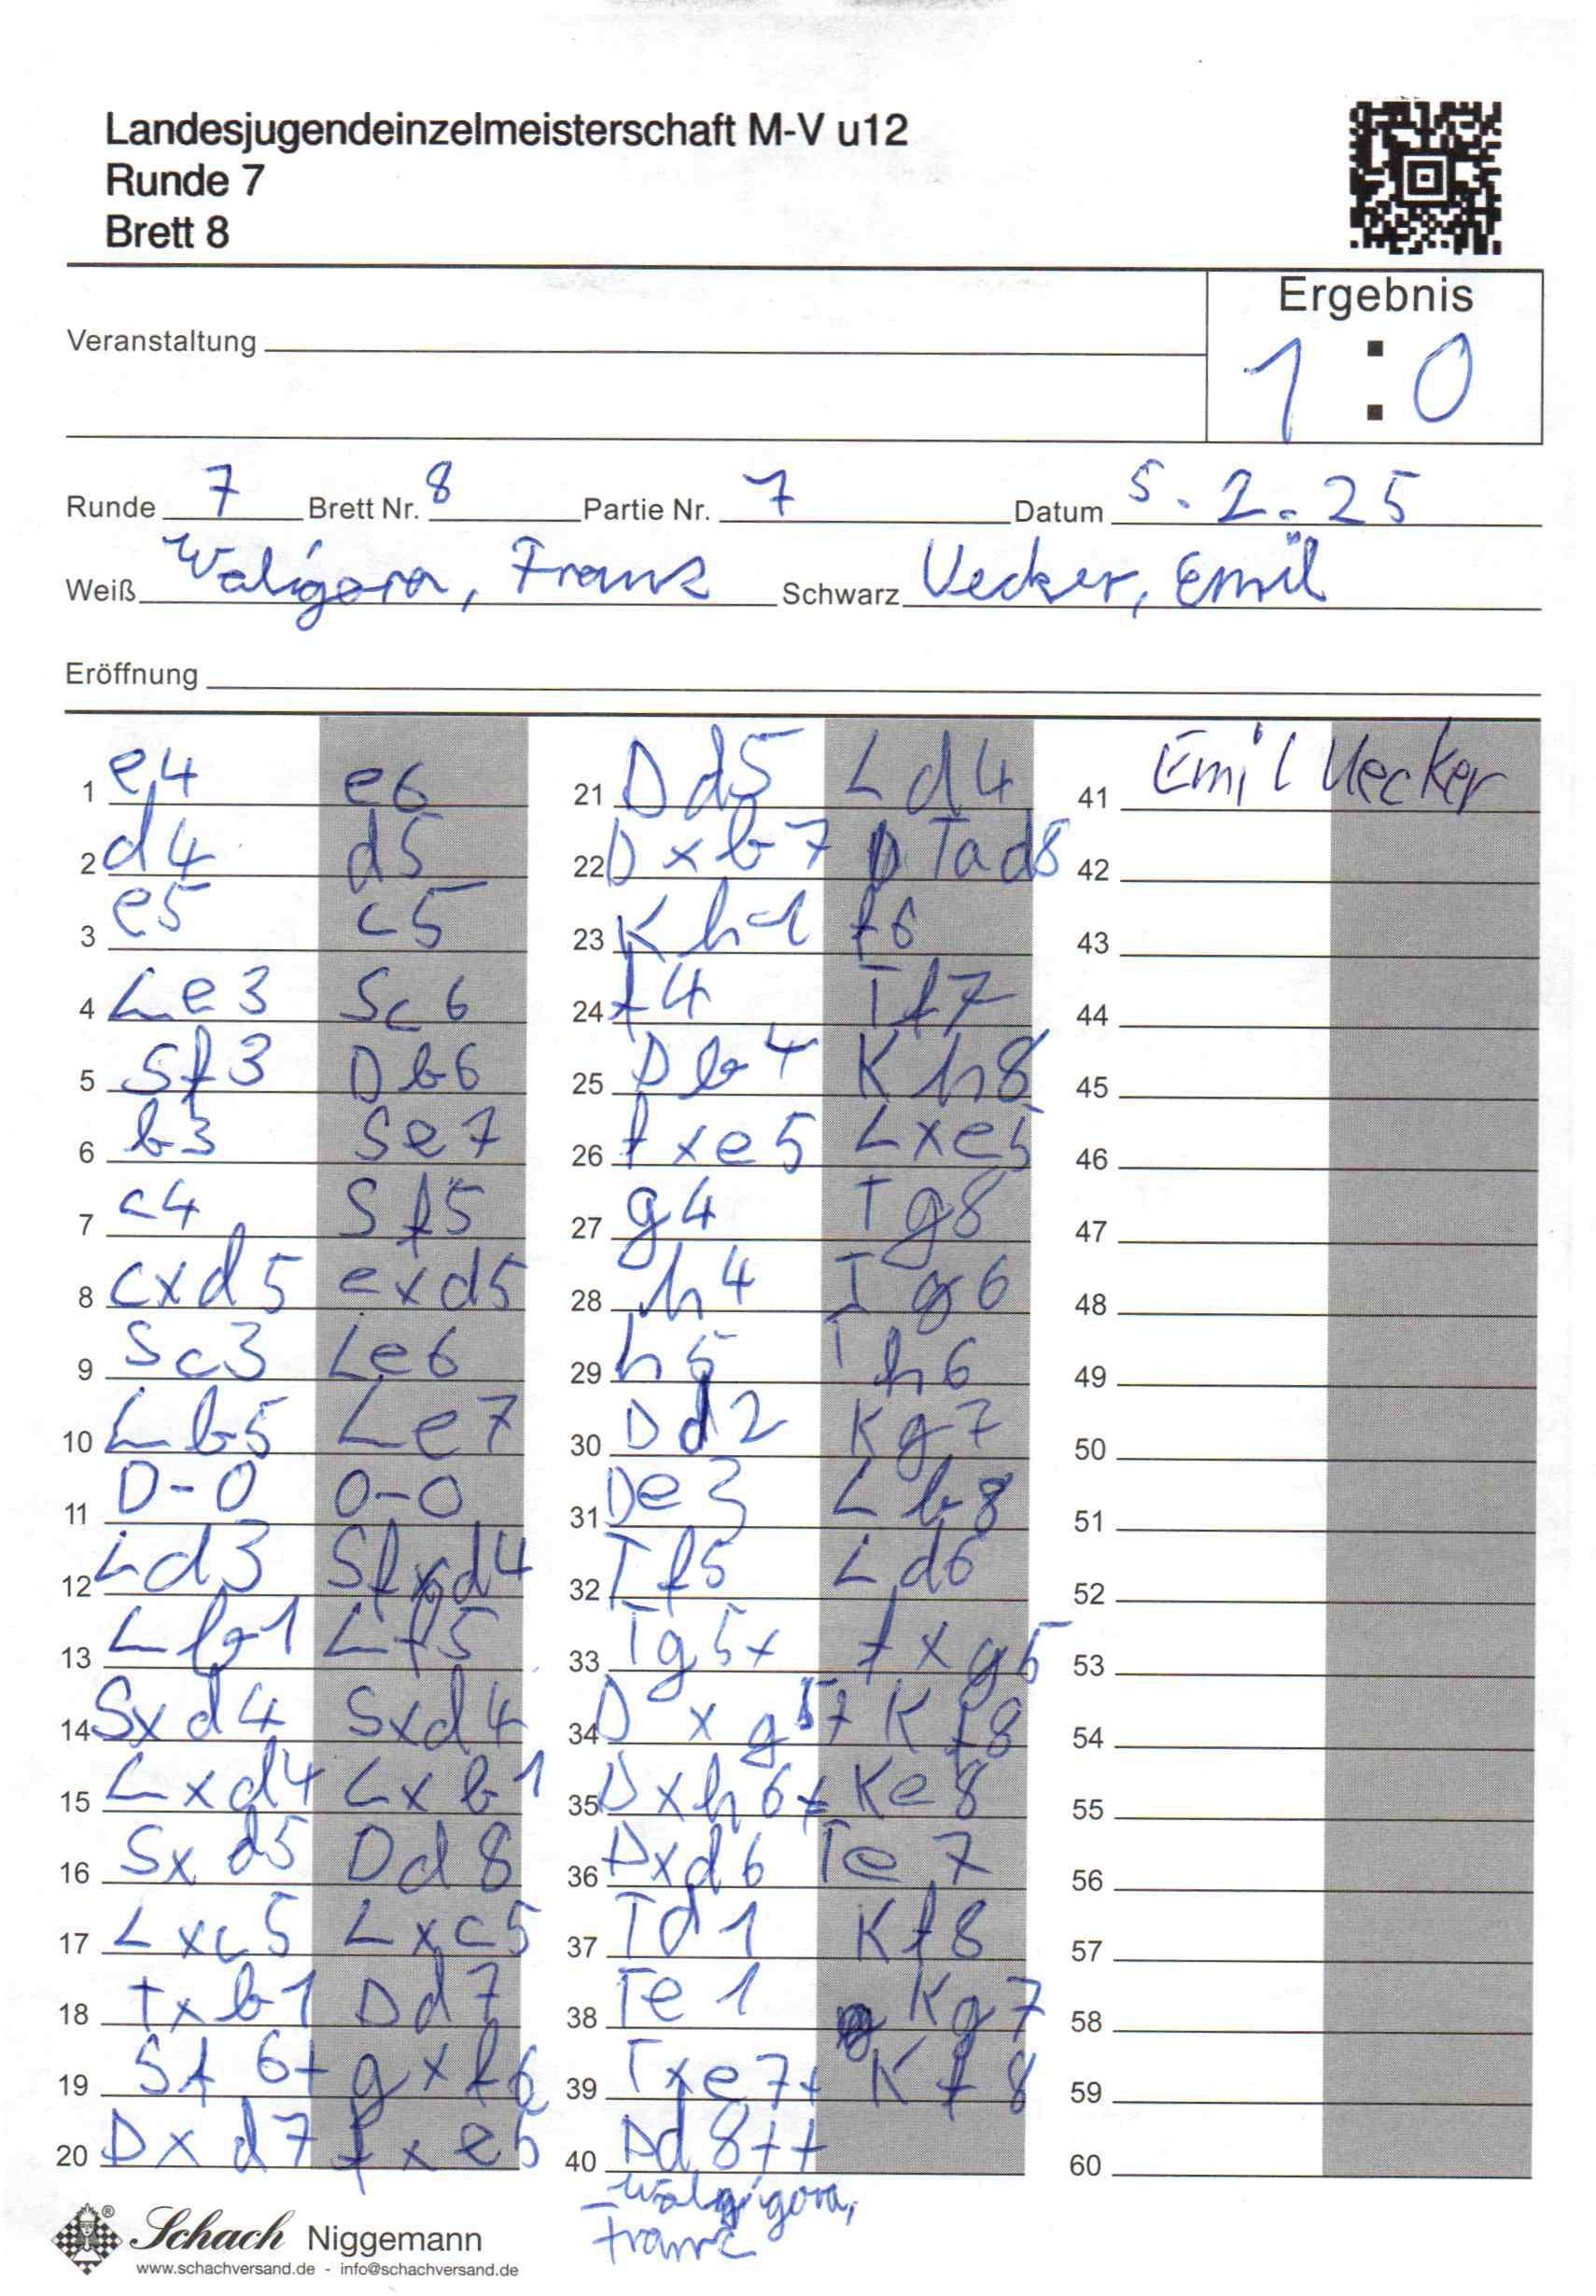 Landesjugendeinzelmeisterschaft M-V u12
Runde 7
Brett 8
Ergebnis
1 : 0
Veranstaltung
Runde 7 Brett Nr. 8 Partie Nr. 7 Datum 5.2.25
Weiß Waligora, Franz Schwarz Uecker, Emil
Eröffnung
1 e4 e6
2 d4 d5
3 e5 c5
4 Le3 Sc6
5 Sf3 Db6
6 b3 Se7
7 c4 Sf5
8 cxd5 exd5
9 Sc3 Le6
10 Lb5 Le7
11 0-0 0-0
12 Ld3 Sfxd4
13 Lb1 Lf5
14 Sxd4 Sxd4
15 Lxd4 Lxb1
16 Sxd5 Dd8
17 Lxc5 Lxc5
18 Txb1 Dd7
19 Sf6+ gxf6
20 Dxd7 fxe5
21 Dd5 Ld4
22 Dxb7 Tad8
23 Kh1 f6
24 f4 Tf7
25 Db4 Kh8
26 fxe5 Lxe5
27 g4 Tg8
28 h4 Tg6
29 h5 Th6
30 Dd2 Kg7
31 De3 Lb8
32 Tf5 Ld6
33 Tg5+ fxg5
34 Dxg5+ Kf8
35 Dxh6+ Ke8
36 Dxd6 Te7
37 Td1 Kf8
38 Te1 Kg7
39 Txe7+ Kf8
40 Dd8++
Waligora,
Franz
41 Emil Uecker
42
43
44
45
46
47
48
49
50
51
52
53
54
55
56
57
58
59
60
Schach Niggemann
www.schachversand.de - info@schachversand.de